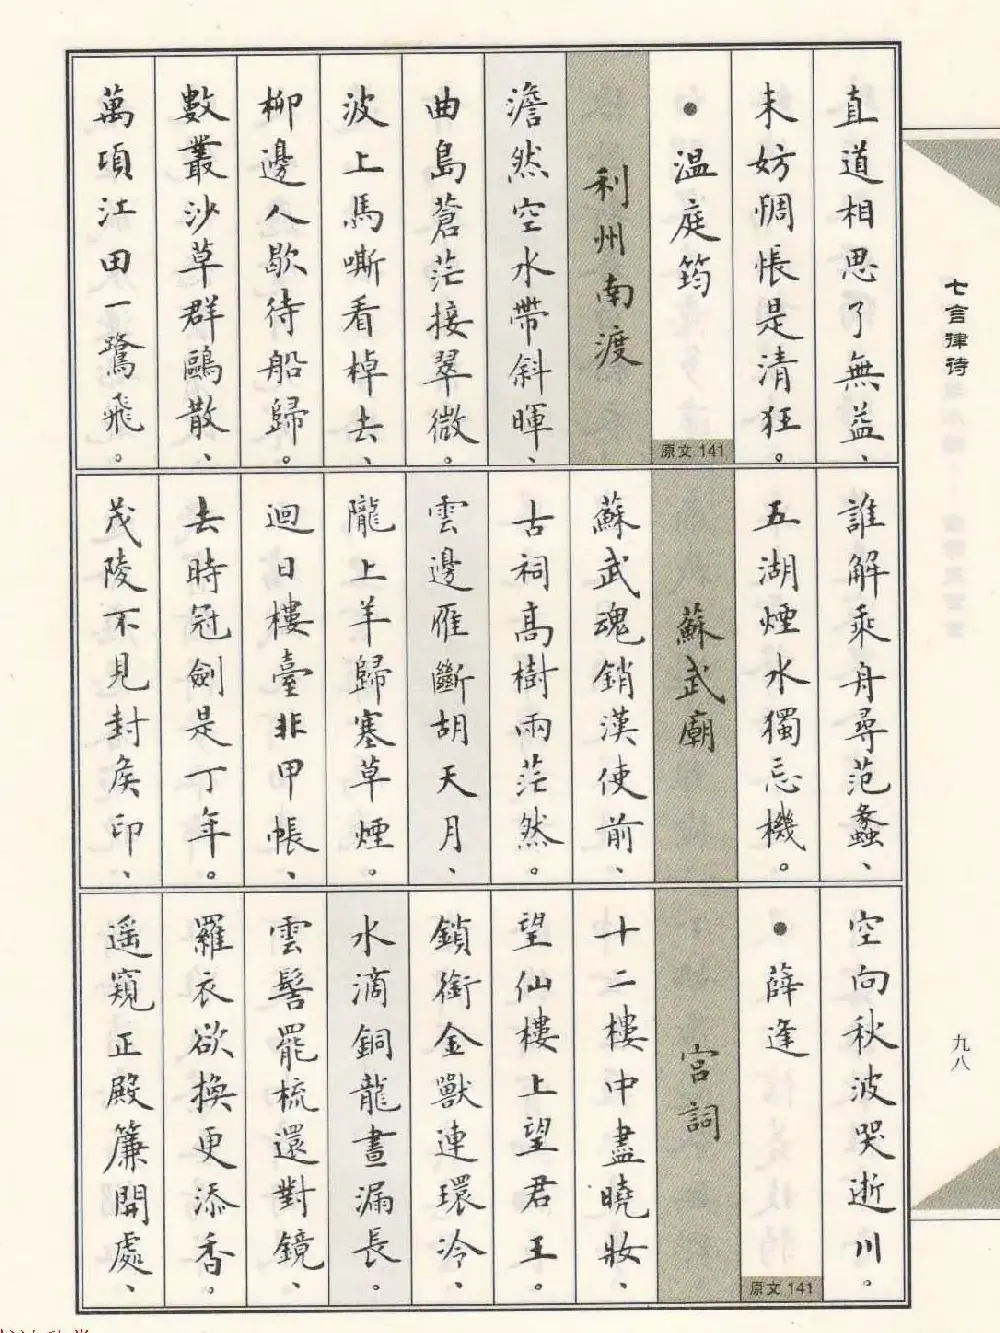 直道相思了無益、
未妨惆悵是清狂。
●温庭筠
原文 141
利州南渡
澹然空水帶斜暉、
曲島蒼茫接翠微。
波上馬嘶看棹去、
柳邊人歇待船歸。
數叢沙草群鷗散、
萬頃江田一鷺飛。
誰解乘舟尋范蠡、
五湖煙水獨忘機。
蘇武廟
蘇武魂銷漢使前、
古祠高樹兩茫然。
雲邊雁斷胡天月、
隴上羊歸塞草煙。
迴日樓臺非甲帳、
去時冠劍是丁年。
茂陵不見封侯印、
空向秋波哭逝川。
●薛逢
原文 141
宮詞
十二樓中盡曉妝、
望仙樓上望君王。
鎖銜金獸連環冷、
水滴銅龍晝漏長。
雲髻罷梳還對鏡、
羅衣欲換更添香。
遥窺正殿簾開處、
七言律诗
九八